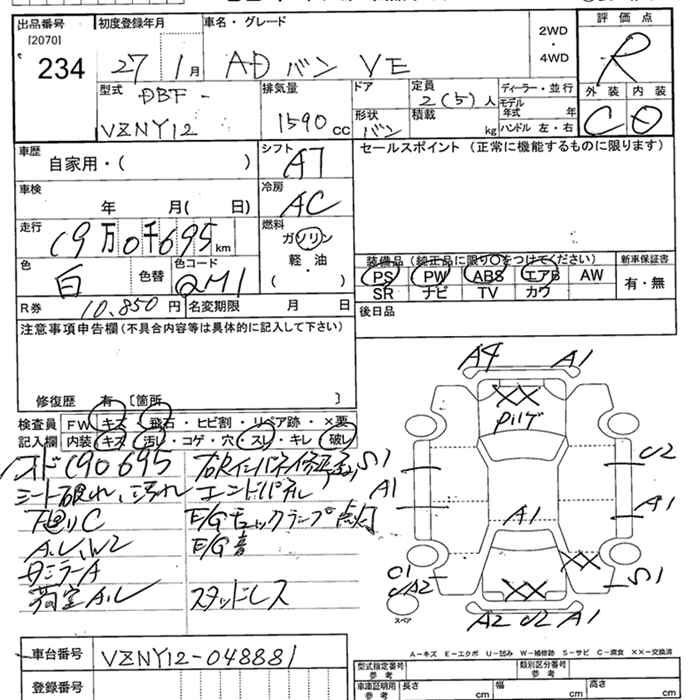 出品番号
[2070]
234
初度登録年月
27 1月
車名・グレード
ADバン VE
2WD
・
4WD
評価点
R
型式
DBF-
VZNY12
排気量
1590 cc
ドア
形状
バン
定員
2(5)人
積載
kg
ディーラー・並行
モデル年式 年
ハンドル 左・右
外装 内装
C D
車歴
自家用・( )
シフト
AT
セールスポイント(正常に機能するものに限ります)
車検
年 月( 日)
冷房
AC
走行
19万0千695km
燃料
ガソリン
軽・油
・
( )
色
白
色替
色コード
QM1
装備品(純正品に限り○をつけてください)
PS PW ABS エアB AW
SR ナビ TV カワ
新車保証書
有・無
R券 10,850円
名変期限 月 日
後日品
注意事項申告欄(不具合内容等は具体的に記入して下さい)
修復歴 有 [箇所 ]
検査員
記入欄
FW キズ・飛石・ヒビ割・リペア跡・×要
内装 キズ・汚し・コゲ・穴・スレ・キレ・破レ
190695
シート破れ、汚れ
エンドパネル
E/Gチェックランプ点灯
A.U.W2
E/G音
ミラーA
荷室A.U
スタッドレス
A4 A1
XX
P曲ゲ
S1
A1
U2
A1
A1
XX
XX
S1
C1
UA2
スペア
A2 U2 A1
A-キズ E-エクボ U-凹み W-補修跡 S-サビ C-腐食 XX-交換済
車台番号
VZNY12-048881
登録番号
型式指定番号
参考
類別区分番号
参考
車庫証明用
参考
長さ cm
幅 cm
高さ cm